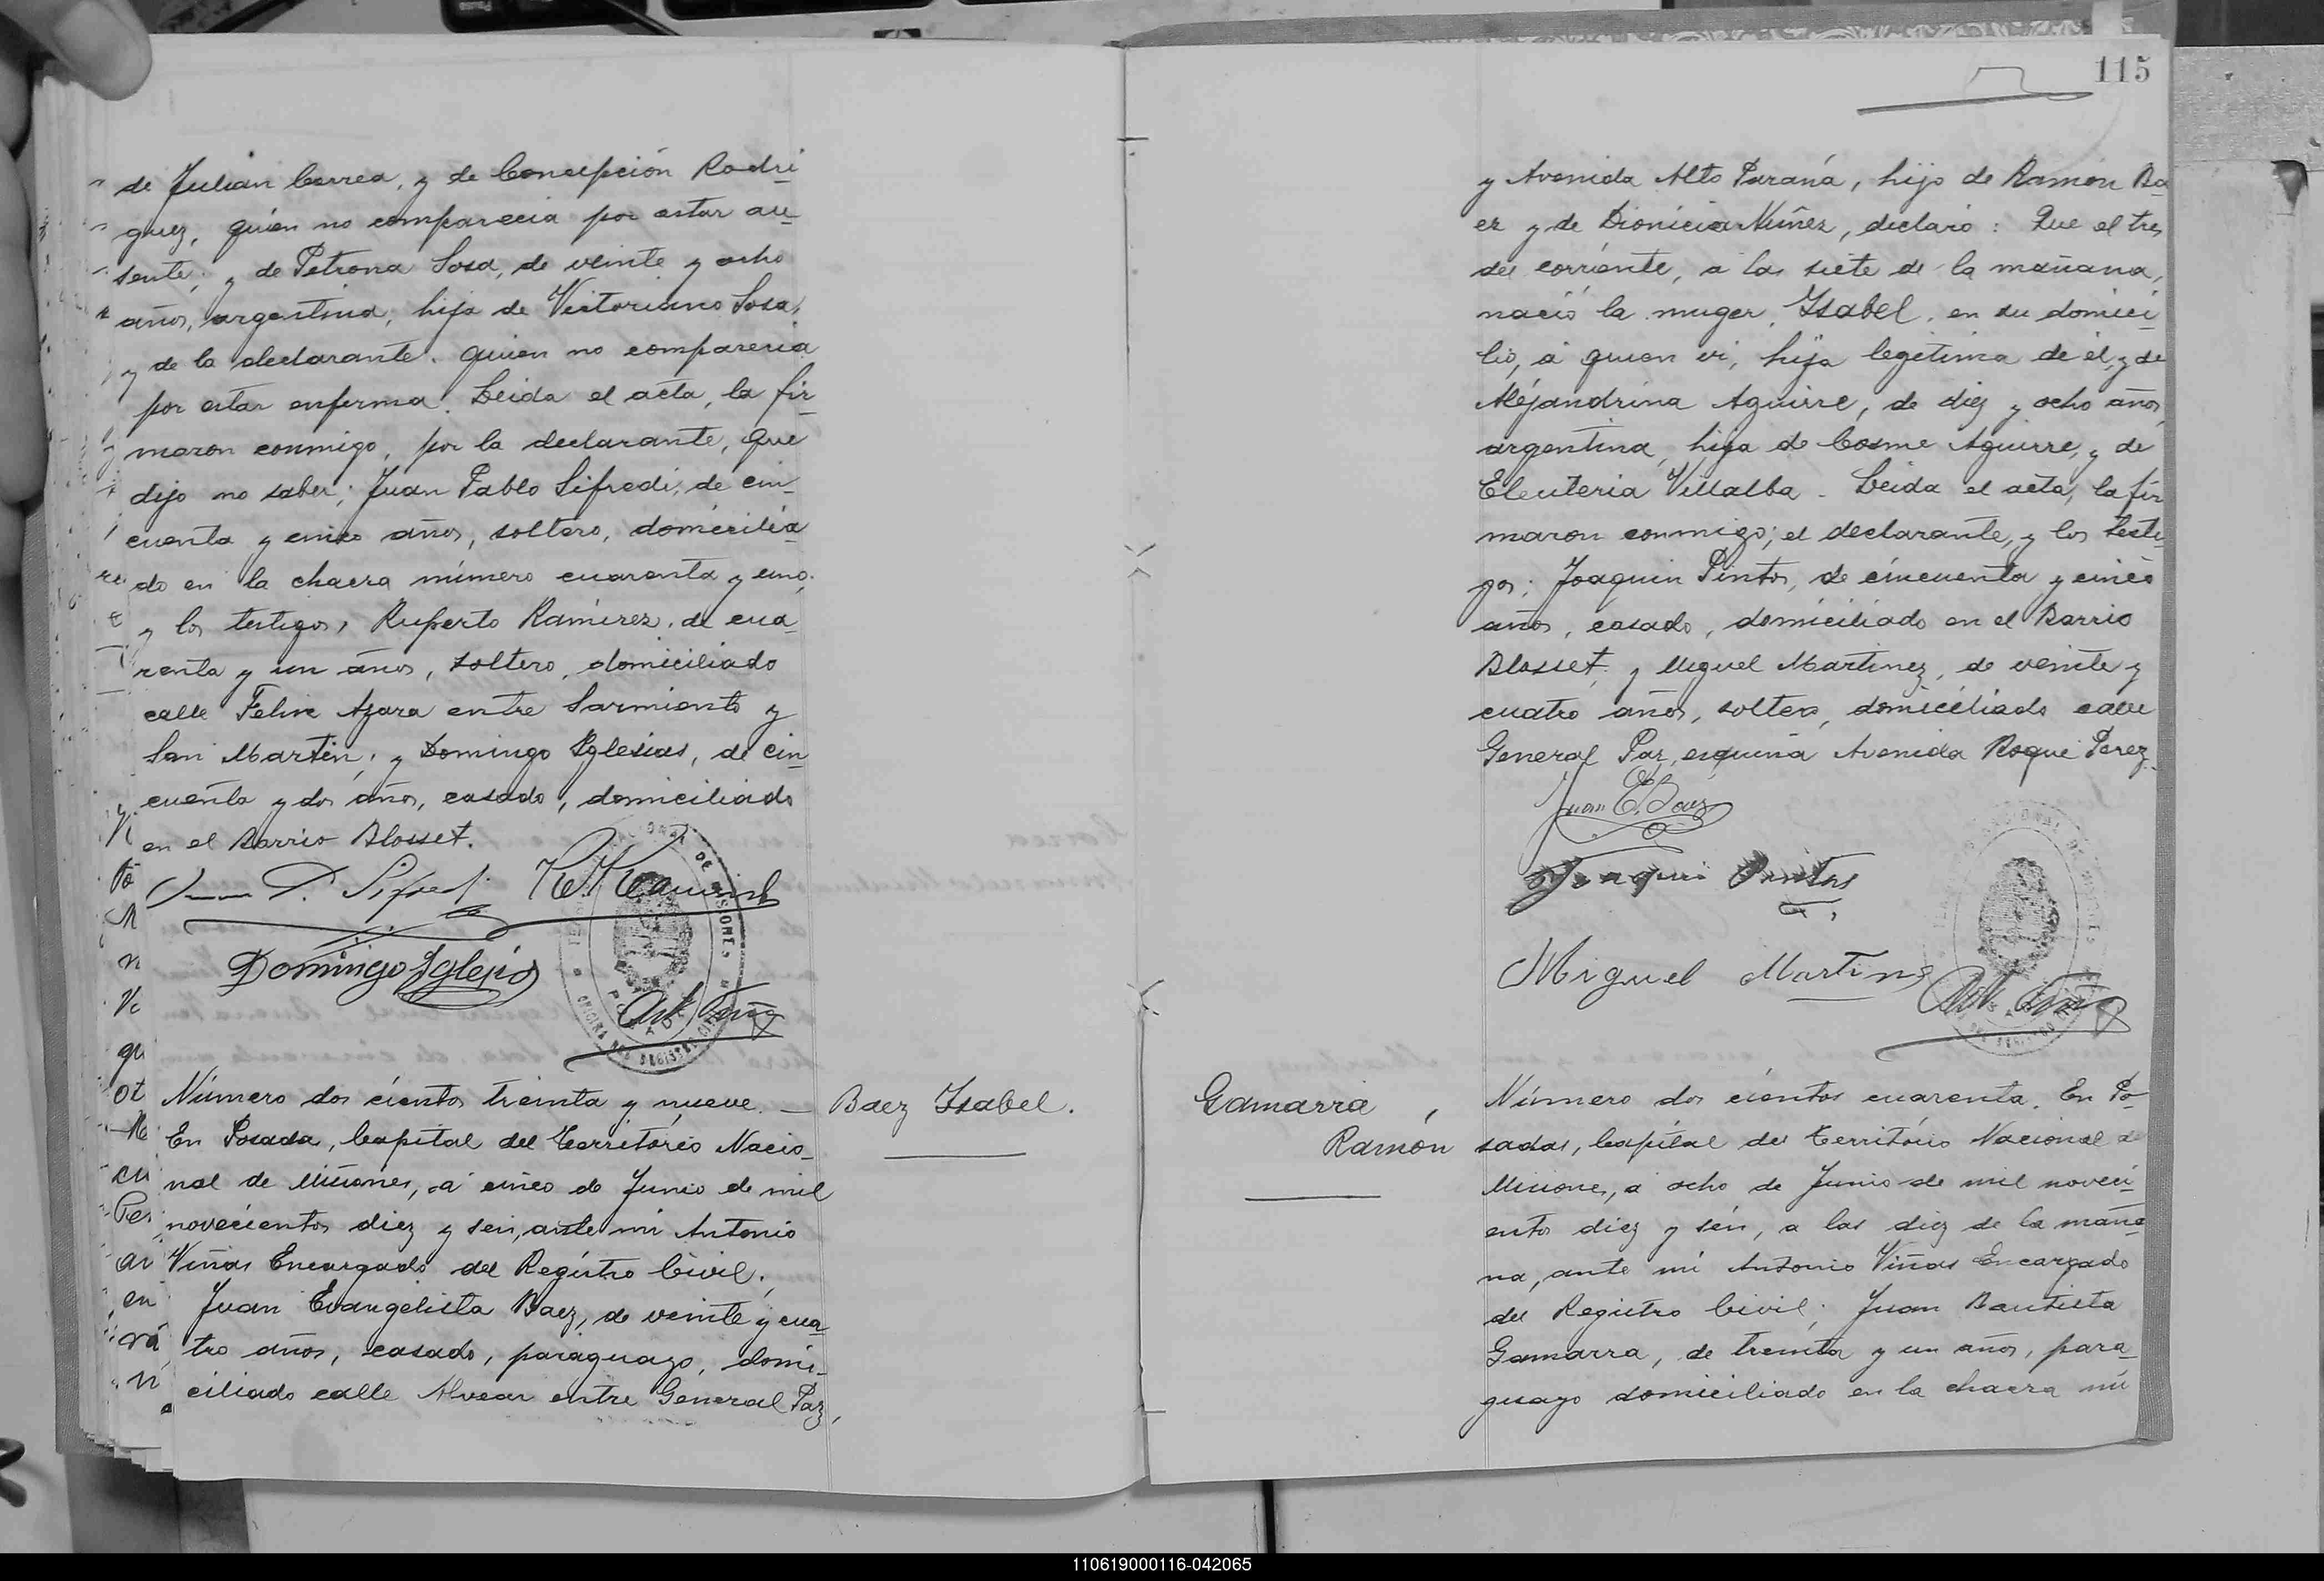 de Julian Correa, y de Concepción Rodri
guez, quien no comparecia por estar au-
sente; y de Petrona Sosa, de veinte y ocho
años, argentina, hija de Victoriano Sosa,
y de la declarante. quien no comparecia
por estar enferma. Leida el acta, la fir-
maron conmigo, por la declarante, que
dijo no saber; Juan Pablo Sifredi, de cin-
cuenta y cinco años, soltero, domicilia-
do en la chacra número cuarenta y uno;
y los testigos, Ruperto Ramirez, de cua-
renta y un años, soltero, domiciliado
calle Felix Azara entre Sarmiento y
San Martin; y Domingo Yglesias, de cin-
cuenta y dos años, casado, domiciliado
en el Barrio Blosset.
Juan P. Sifredi R. Ramirez
Domingo Yglesias
Ant Viñas
Número dos cientos treinta y nueve. —
Baez Isabel.
En Posada, Capital del Territorio Nacio-
nal de Misiones, a cinco de Junio de mil
novecientos diez y seis, ante mi Antonio
Viñas Encargado del Registro Civil;
Juan Evangelista Baez, de veinte y cua-
tro años, casado, paraguayo, domi-
ciliado calle Alvear entre General Paz,
115
y Avenida Alto Paraná, hijo de Ramón Ba
ez y de Dionicia Nuñez, declaró: Que el tres
del corriente, a las siete de la mañana,
nació la muger, Isabel, en su domici-
lio, á quien vi, hija legitima de él, y de
Aléjandrina Aguirre, de diez y ocho años,
argentina, hija de Cosme Aguirre, y de
Eleuteria Villalba. Leida el acta, la fir
maron conmigo; el declarante, y los testi-
gos; Joaquin Pintos, de cincuenta y cinco
años, casado, domiciliado en el Barrio
Blosset; y Miguel Martinez, de veinte y
cuatro años, soltero, domiciliado calle
General Paz, esquina Avenida Roque Perez.
Juan E. Baez
Joaquin Pintos
Miguel Martinez
Ant Viñas
Gamarra,
Ramón
Número dos cientos cuarenta. En Po-
sadas, Capital del Territorio Nacional de
Misiones, a ocho de Junio de mil noveci-
entos diez y séis, a las diez de la maña-
na, ante mi Antonio Viñas Encargado
del Registro Civil; Juan Bautista
Gamarra, de treinta y un años, para-
guayo domiciliado en la chacra nú
110619000116-042065